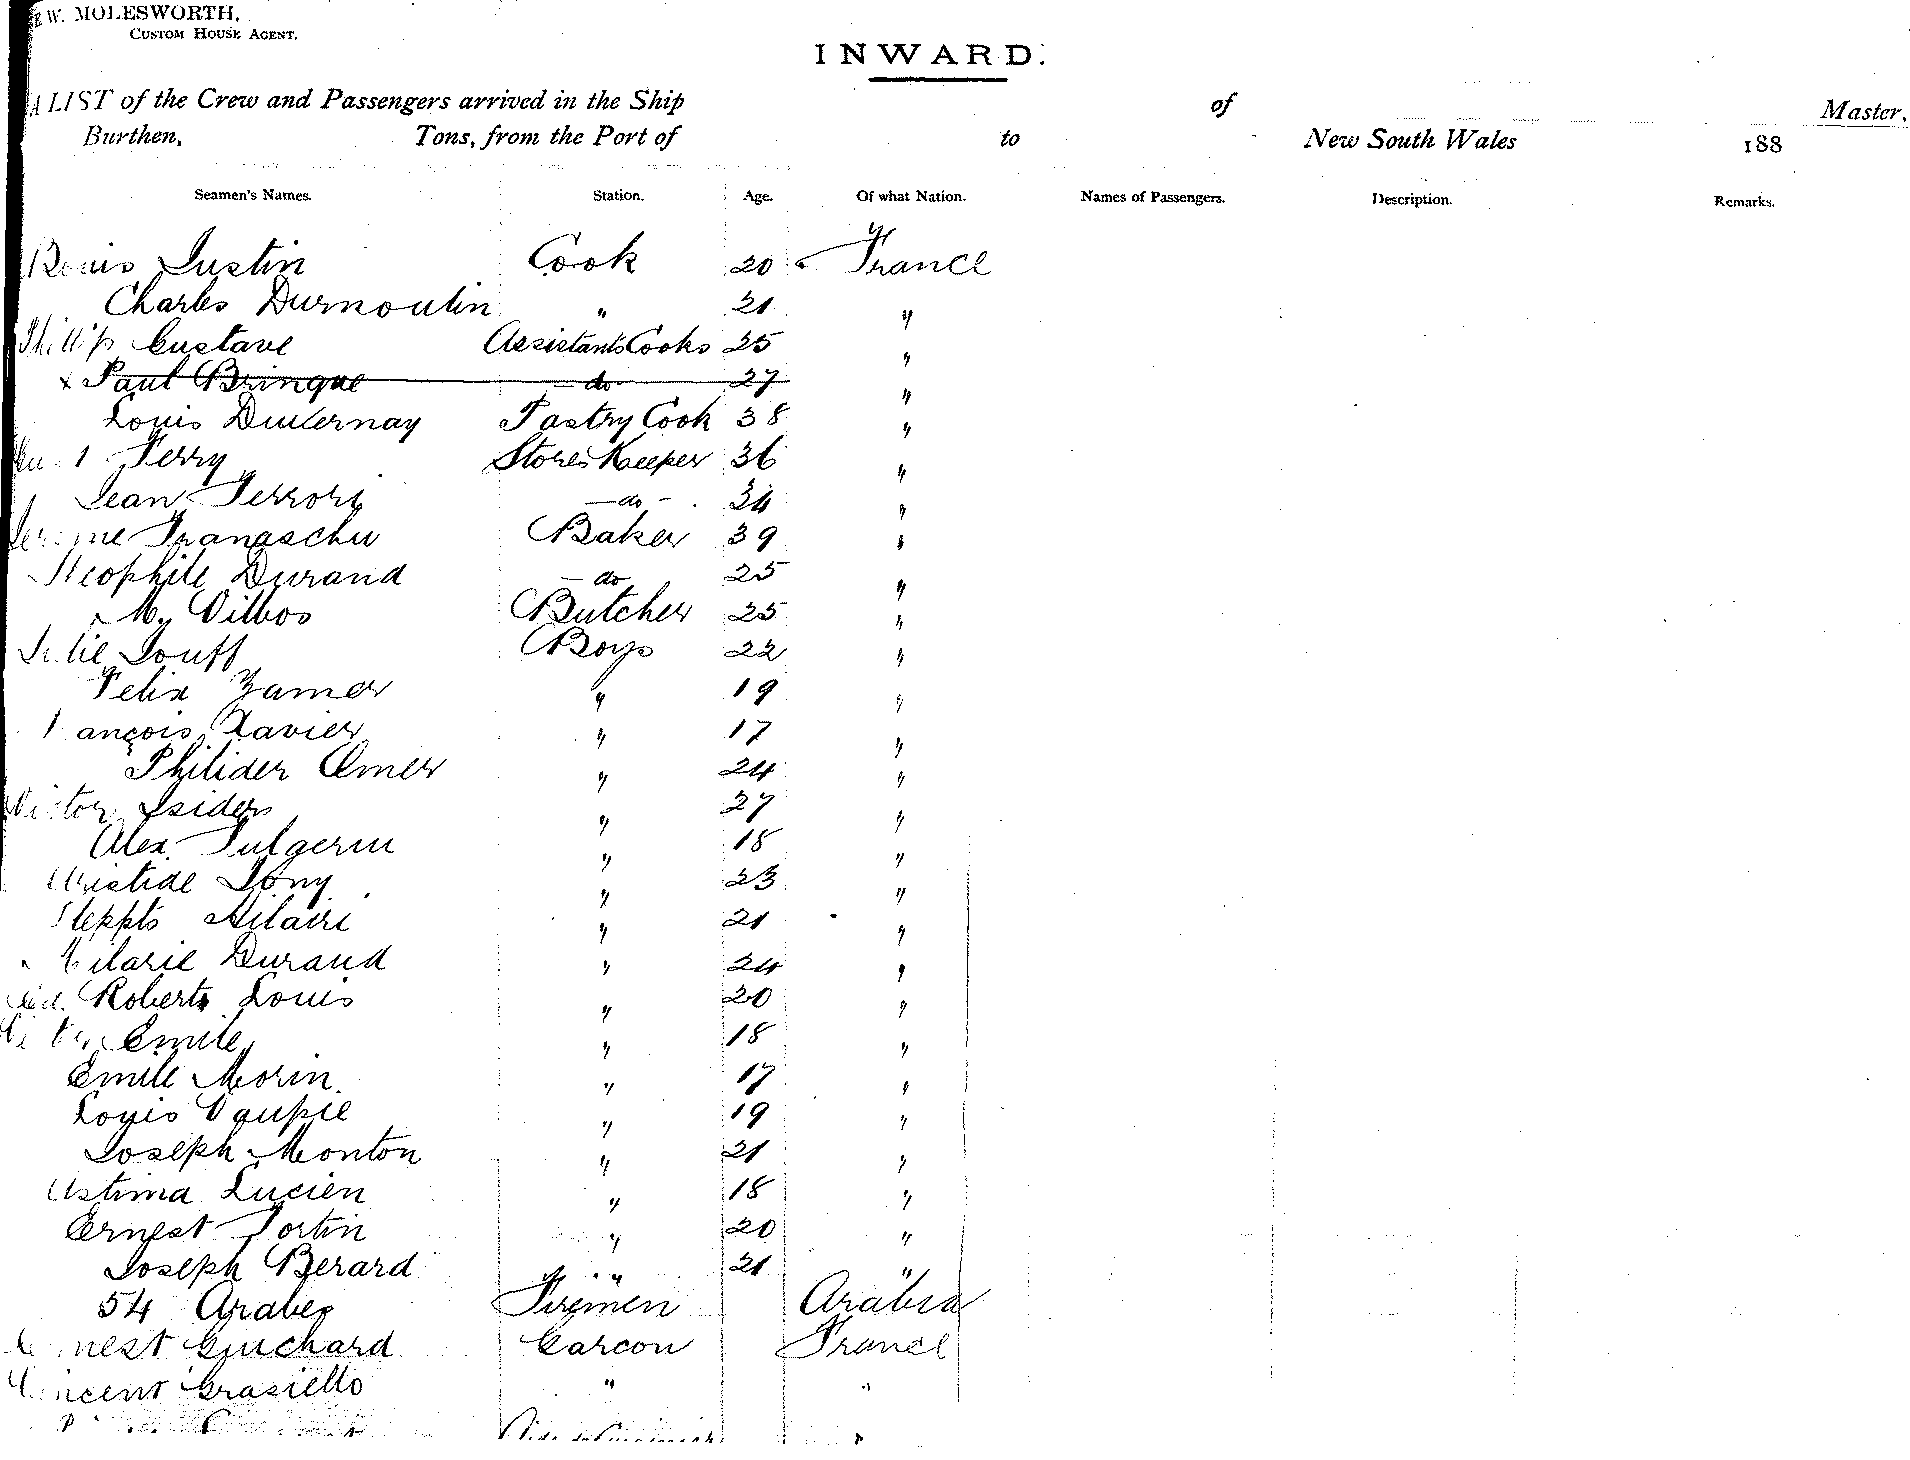 W. MOLESWORTH,
CUSTOM HOUSE AGENT.
INWARD.
A LIST of the Crew and Passengers arrived in the Ship of Master,
Burthen, Tons, from the Port of to New South Wales 188
Seamen's Names. Station. Age. Of what Nation. Names of Passengers. Description. Remarks.
Justin Cook 20 France
Charles Durnoulin " 21 "
Phillip Gustave Assistants Cooks 25 "
x Paul Bringue do 27 "
Louis Pastry Cook 38 "
Ferry Stores Keeper 36 "
Jean Ferrori - do - 34 "
Baker 39 "
Theophile Durand - do 25 "
M. Vilbos Butcher 25 "
Jouff Boys 22 "
Felix Zamer " 19 "
ancois Xavier " 17 "
Philider Omer " 24 "
Victor Isidor " 27 "
Alex. Fulgerin " 18 "
Aristide Tony " 23 "
Hilairi " 21 "
Hilarie Durand " 24 "
Roberts Louis " 20 "
Emile " 18 "
Emile Morin " 17 "
Louis Daupie " 19 "
Joseph Monton " 21 "
Astima Lucien " 18 "
Ernest Fortin " 20 "
Joseph Berard " 21 "
54 Arabes Firemen Arabia
nest Guichard Garcon France
incent Grasiello " "